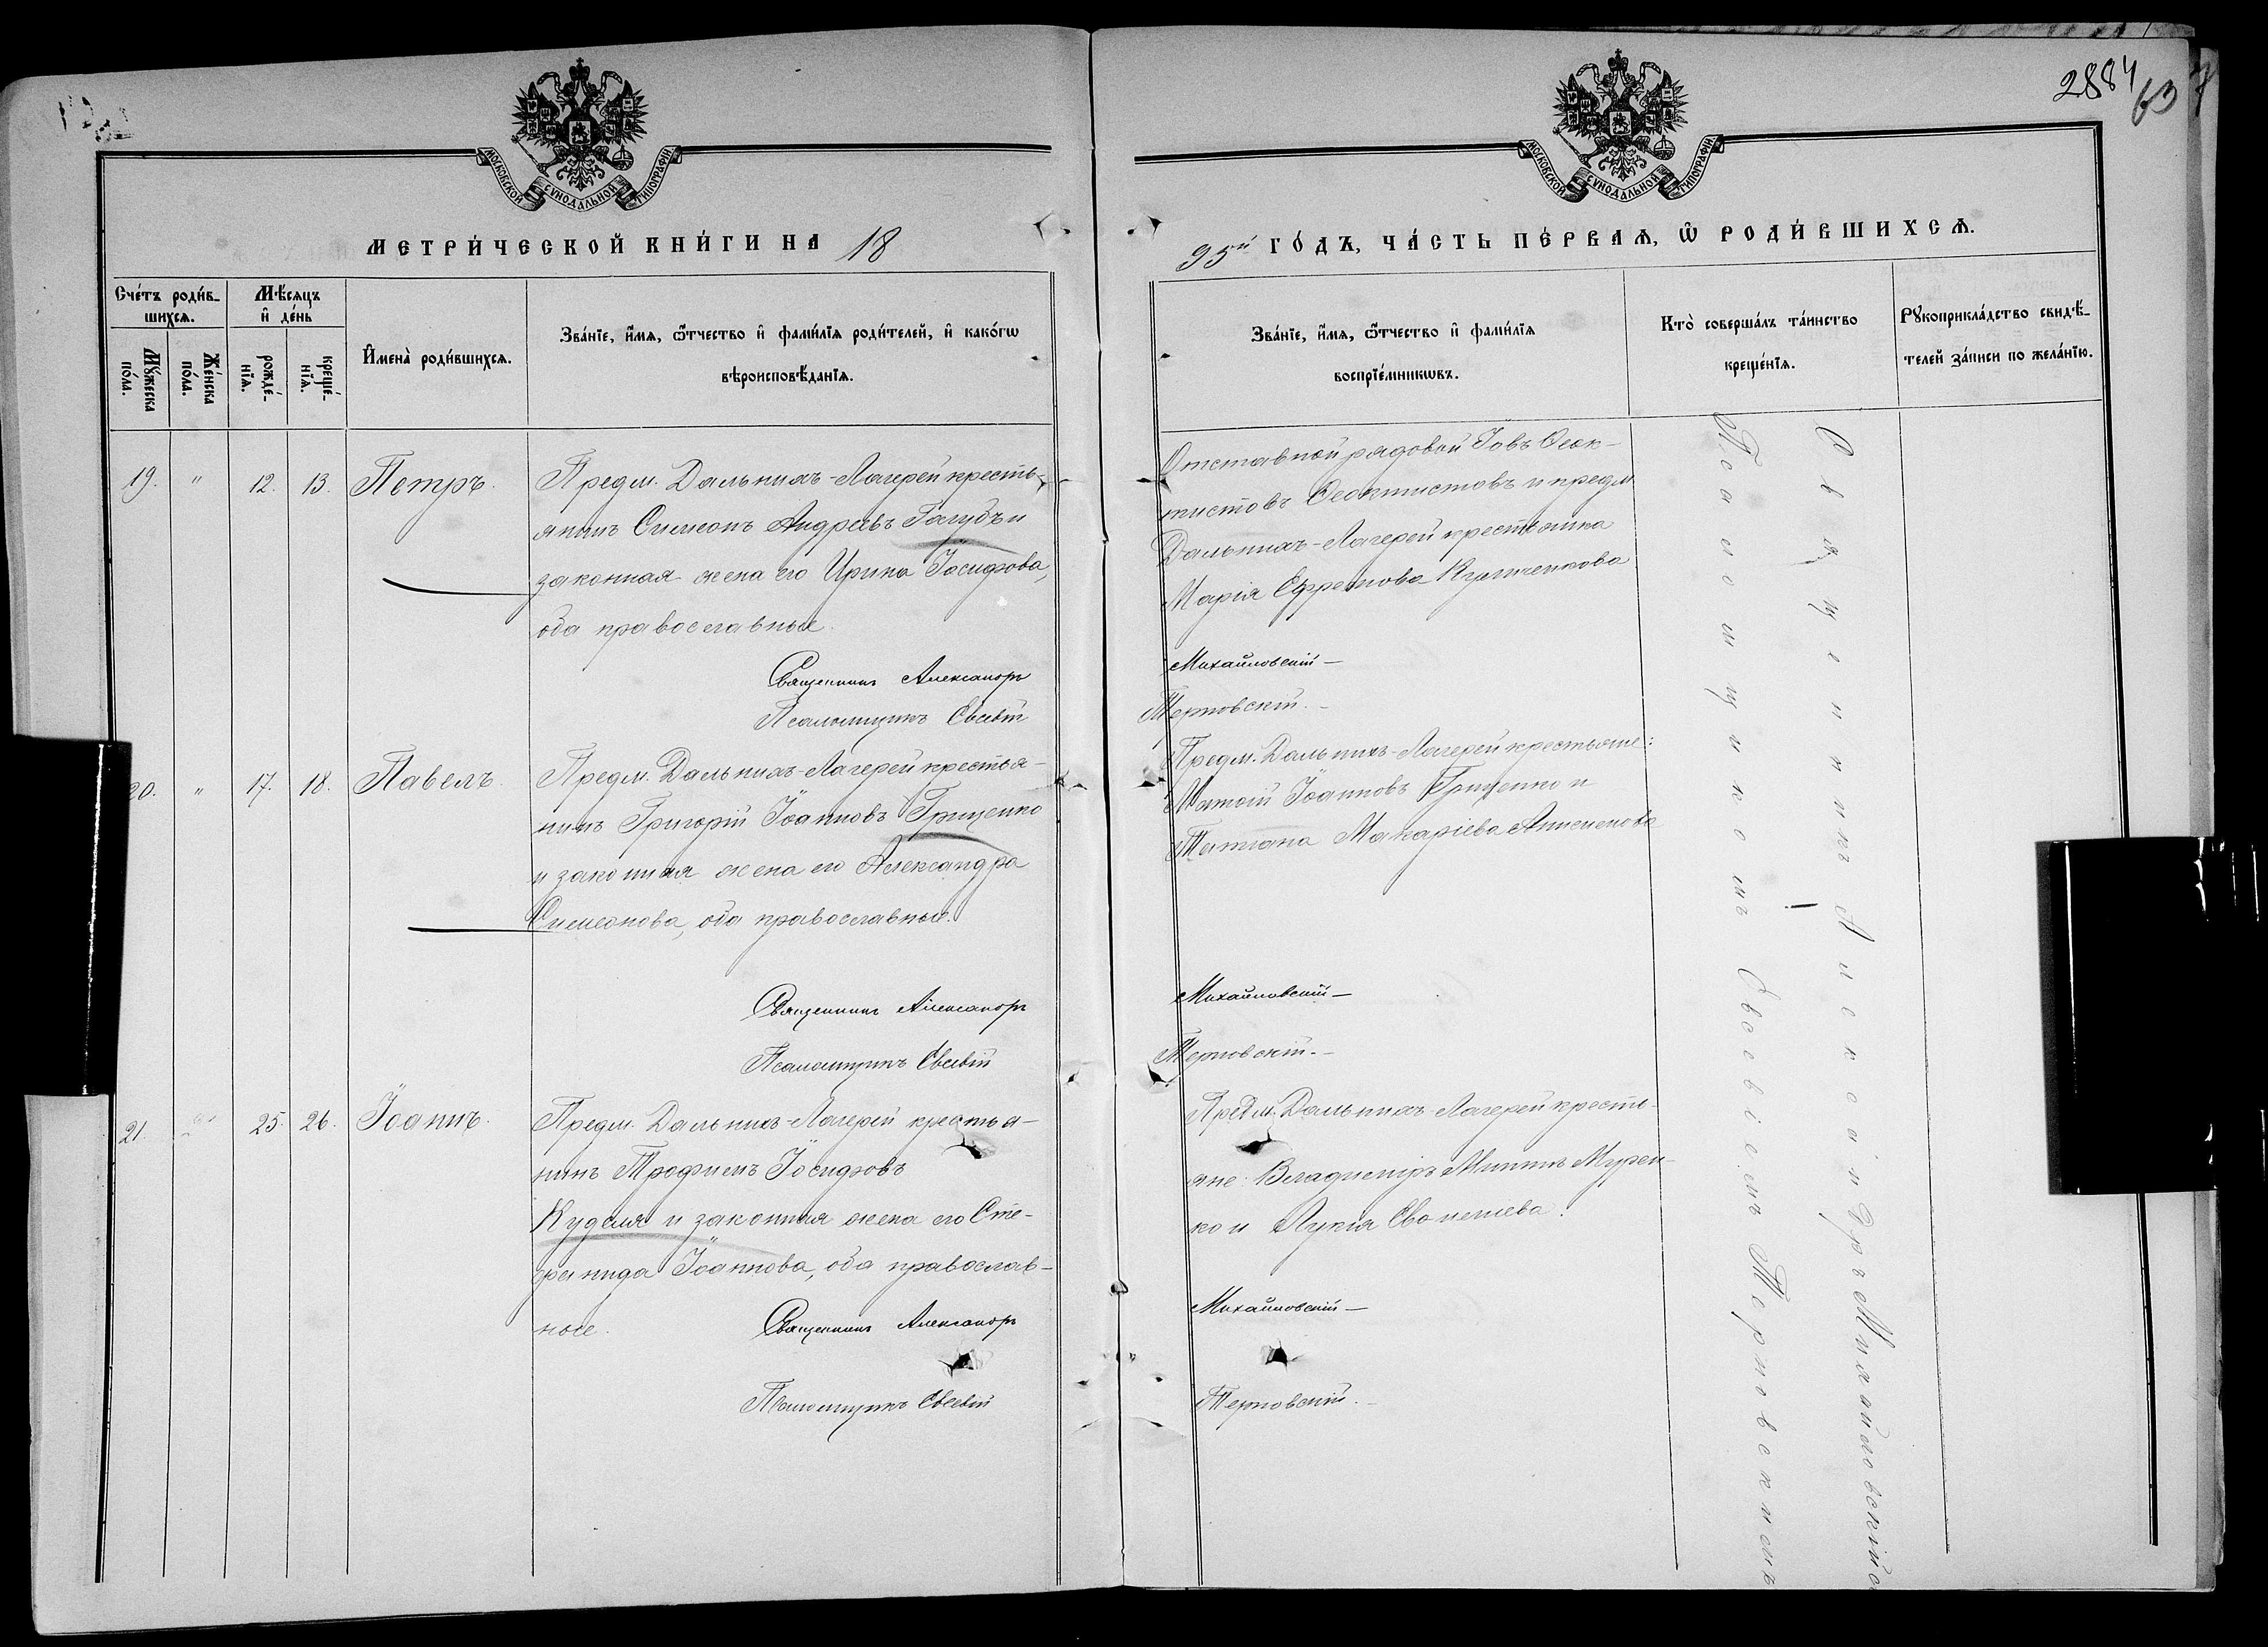 2884
63
МОСКОВСКОЙ СѴНОДАЛЬНОЙ ТИПОГРАФІИ
МОСКОВСКОЙ СѴНОДАЛЬНОЙ ТИПОГРАФІИ
МЕТРИ́ЧЕСКОЙ КНИ́ГИ НА 18
95й ГО́ДЪ, ЧА́СТЬ ПЕ́РВАѦ, Ѿ РОДИ́ВШИХСѦ.
Сче́тъ роди́в-
шихсѧ.
Мꙋ́жеска
по́ла.
Же́нска
по́ла.
Мѣ́сяцъ
и҆ де́нь
рожде́-
нїѧ.
креще́-
нїѧ.
И҆мена̀ роди́вшихсѧ.
Зва́нїе, и҆́мѧ, ѻ҆́тчество и҆ фами́лїѧ роди́телей, и҆ како́гѡ
вѣроисповѣ́данїѧ.
Зва́нїе, и҆́мѧ, ѻ҆́тчество и҆ фами́лїѧ
воспрїе́мникѡвъ.
Кто̀ соверша́лъ та́инство
креще́нїѧ.
Рꙋкоприкла́дство свидѣ́-
телей за́писи по жела́нїю.
19. " 12. 13. Петръ.
Предм. Дальнихъ-Лагерей кресть-
янинъ Симеонъ Андреевъ Голубъ и
законная жена его Ирина Іосифова,
оба православные.
Священникъ Александръ
Псаломщикъ Евсевій
Отставной рядовой Іовъ Феок-
тистовъ Феоктистовъ и предм.
Дальнихъ-Лагерей крестьянка
Марія Ефремова
Михайловскій —
Терновскій. —
20. " 17. 18. Павелъ.
Предм. Дальнихъ-Лагерей крестья-
нинъ Григорій Іоанновъ Гриценко
и законная жена его Александра
Симеонова, оба православные.
Священникъ Александръ
Псаломщикъ Евсевій
Предм. Дальнихъ-Лагерей крестьяне:
Іоанновъ Гриценко и
Татіана Макаріева
Михайловскій —
Терновскій. —
21. " 25. 26. Іоаннъ.
Предм. Дальнихъ-Лагерей крестья-
нинъ Трофимъ Іосифовъ
Куделя и законная жена его Сте-
фанида Іоаннова, оба православ-
ные.
Священникъ Александръ
Псаломщикъ Евсевій
Предм. Дальнихъ-Лагерей кресть-
яне: Владиміръ Мурен-
ко и Лукія
Михайловскій —
Терновскій. —
Священникъ Александръ Михайловскій съ
Псаломщикомъ Евсевіемъ Терновскимъ